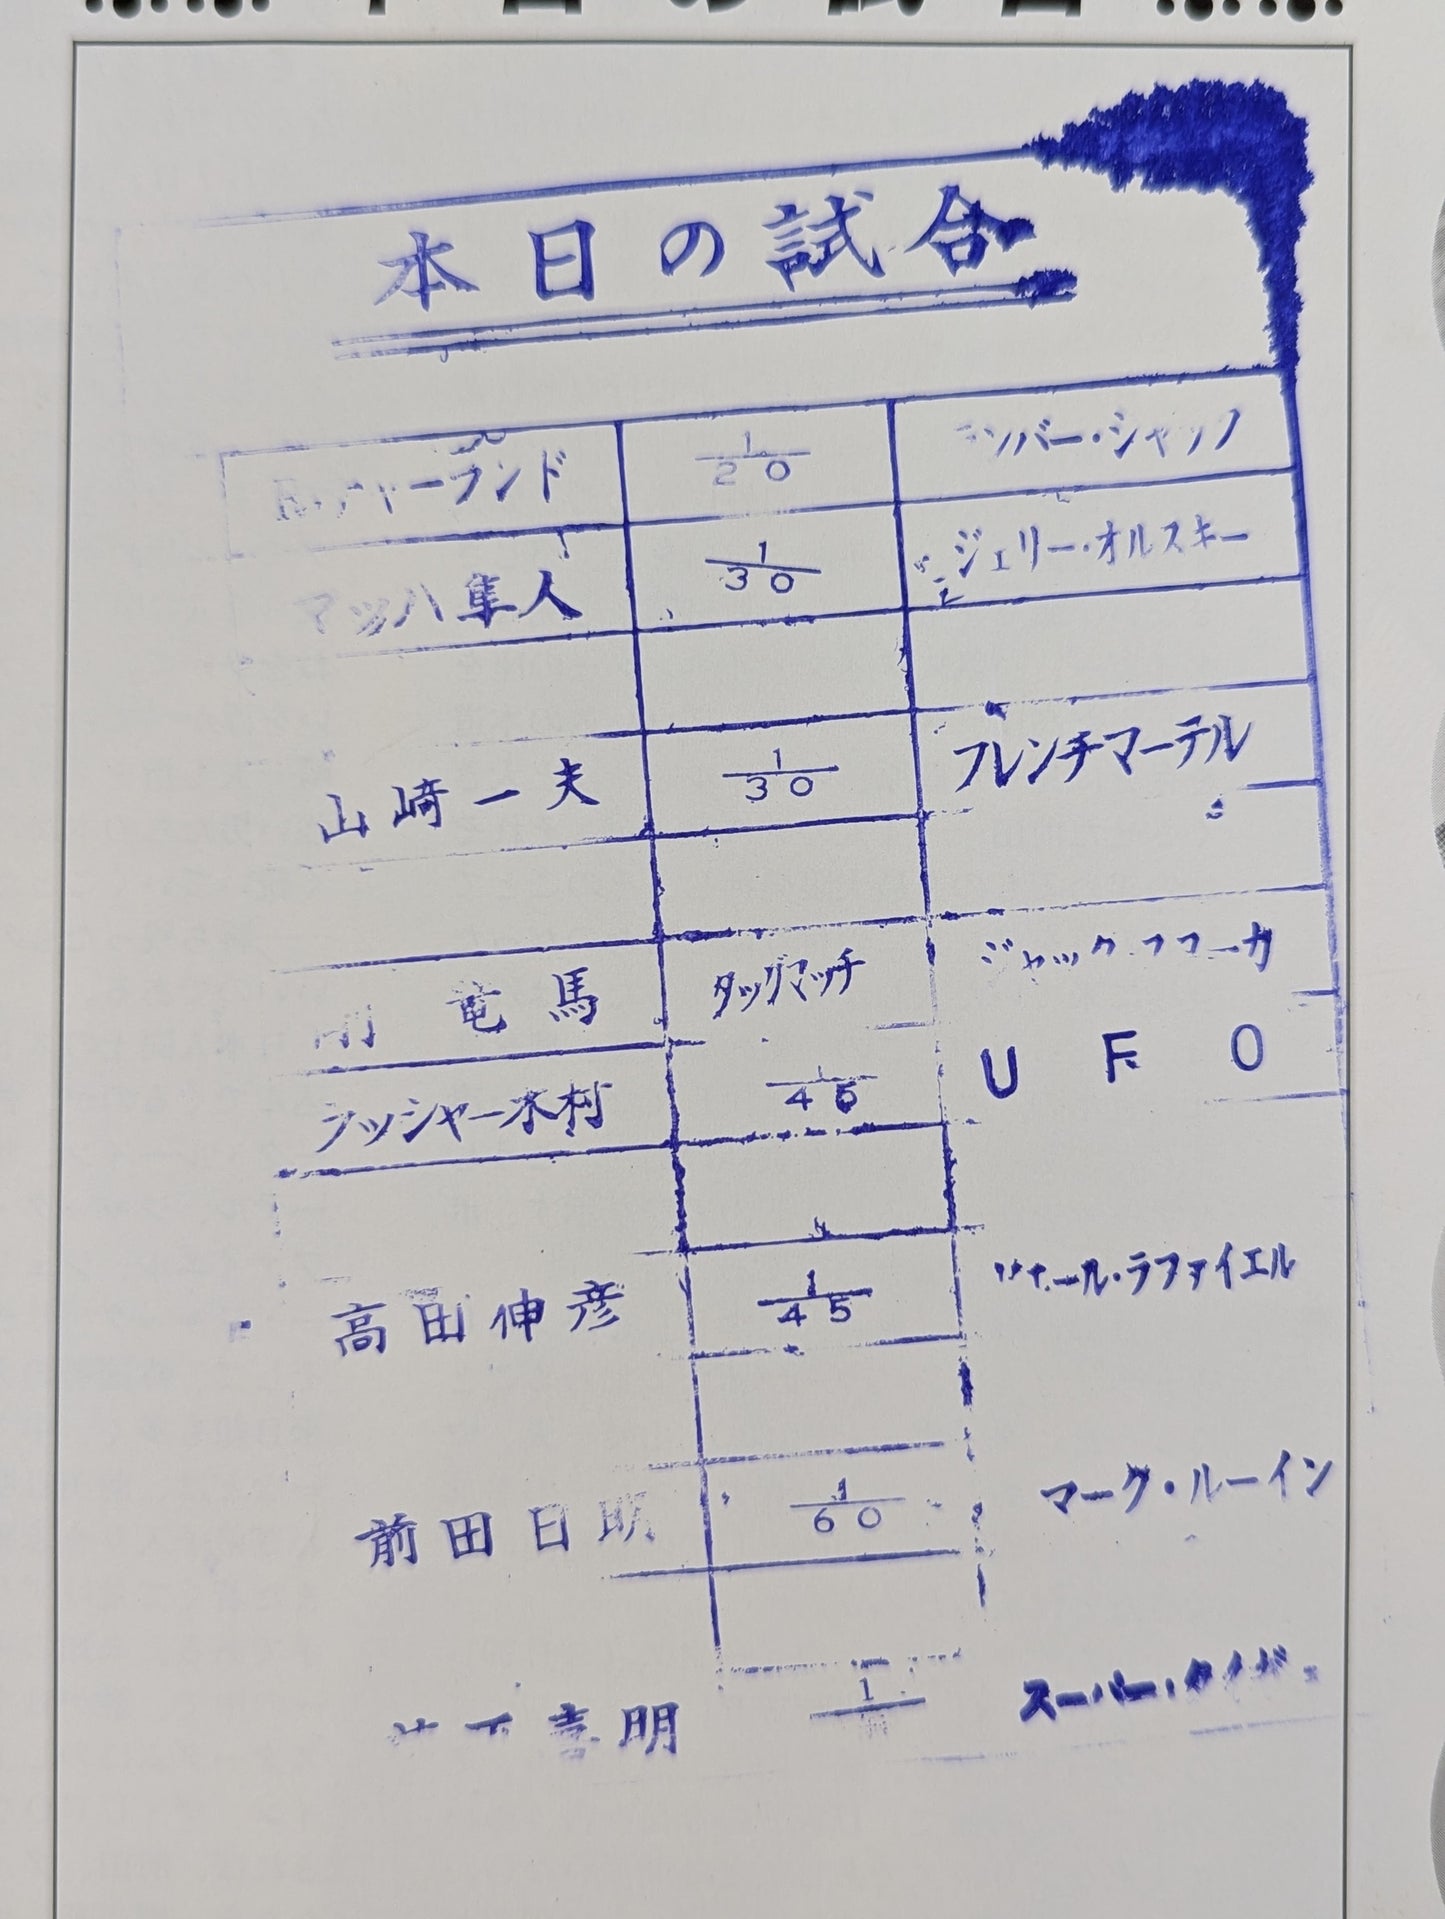 本日の試合
本日の試合
1/20 バー・シャック
マッハ隼人 1/30 ジェリー・オルスキー
山崎一夫 1/30 フレンチマーテル
竜馬 タッグマッチ ジャック
ラッシャー木村 1/45 UFO
高田伸彦 1/45 ラファイエル
前田日明 1/60 マーク・ルーイン
明 1 スーパー・タイガー